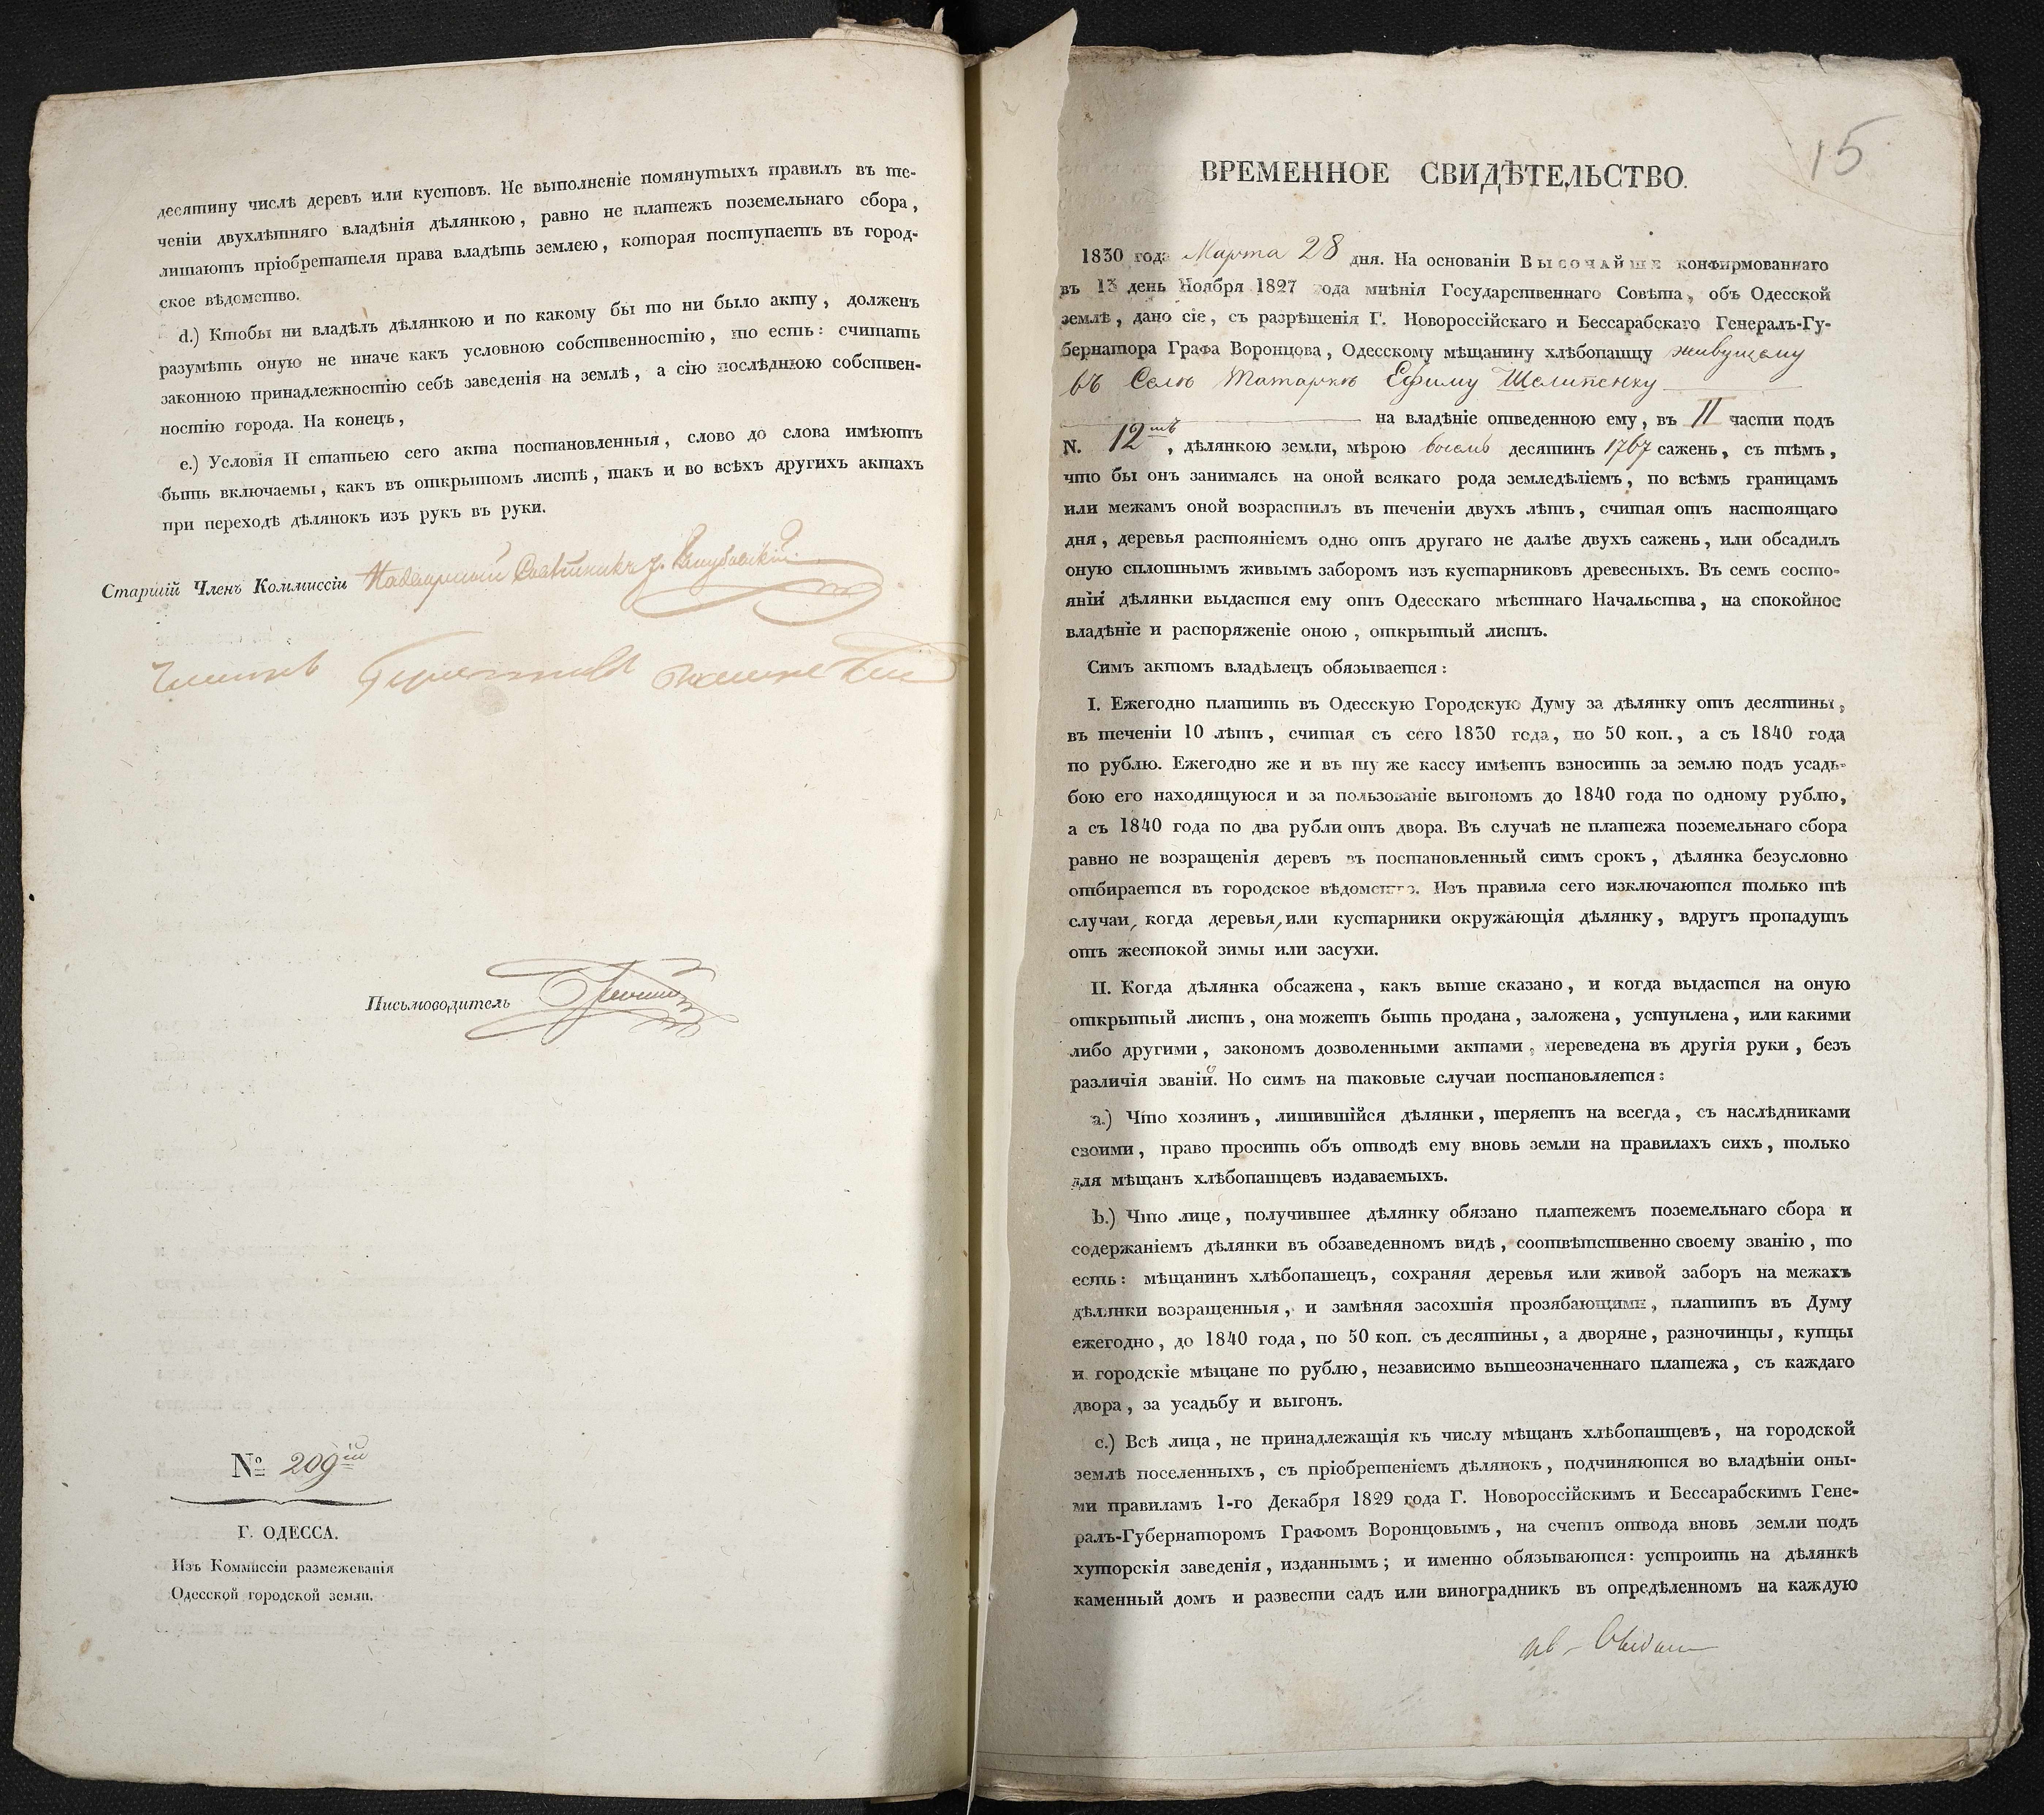 десятину числѣ деревъ или кустовъ. Не выполненіе помянутыхъ правилъ въ те-
ченіи двухлѣтняго владѣнія дѣлянкою, равно не платежъ поземельнаго сбора,
лишаютъ пріобретателя права владѣть землею, которая поступаетъ въ город-
ское вѣдомство.
d.) Ктобы ни владѣлъ дѣлянкою и по какому бы то ни было акту, долженъ
разумѣть оную не иначе какъ условною собственностію, то есть: считать
законною принадлежностію себѣ заведенія на землѣ, а сію послѣднюю собствен-
ностію города. На конецъ,
e.) Условія II статьею сего акта постановленныя, слово до слова имѣютъ
быть включаемы, какъ въ открытомъ листѣ, такъ и во всѣхъ другихъ актахъ
при переходѣ дѣлянокъ изъ рукъ въ руки.
Старшій Членъ Коммиссіи Надворный Совѣтникъ
Письмоводитель
№ 209й
Г. ОДЕССА.
Изъ Коммиссіи размежеванія
Одесской городской земли.
15
ВРЕМЕННОЕ СВИДѢТЕЛЬСТВО.
1830 года Марта 28 дня. На основаніи Высочайше конфирмованнаго
въ 13 день Ноября 1827 года мнѣнія Государственнаго Совѣта, объ Одесской
землѣ, дано сіе, съ разрѣшенія Г. Новороссійскаго и Бессарабскаго Генералъ-Гу-
бернатора Графа Воронцова, Одесскому мѣщанину хлѣбопашцу живущему
въ Селѣ Татаркѣ Ефиму Шелипенку
на владѣніе отведенною ему, въ II части подъ
N. 12мъ, дѣлянкою земли, мѣрою восемь десятин 1767 сажень, съ тѣмъ,
что бы онъ занимаясь на оной всякаго рода земледѣліемъ, по всѣмъ границамъ
или межамъ оной возрастилъ въ теченіи двухъ лѣтъ, считая отъ настоящаго
дня, деревья растояніемъ одно отъ другаго не далѣе двухъ сажень, или обсадилъ
оную сплошнымъ живымъ заборомъ изъ кустарниковъ древесныхъ. Въ семъ состо-
яніи дѣлянки выдастся ему отъ Одесскаго мѣстнаго Начальства, на спокойное
владѣніе и распоряженіе оною, открытый листъ.
Симъ актомъ владѣлецъ обязывается:
I. Ежегодно платить въ Одесскую Городскую Думу за дѣлянку отъ десятины,
въ теченіи 10 лѣтъ, считая съ сего 1830 года, по 50 коп., а съ 1840 года
по рублю. Ежегодно же и въ ту же кассу имѣетъ взносить за землю подъ усадь-
бою его находящуюся и за пользованіе выгономъ до 1840 года по одному рублю,
а съ 1840 года по два рубли отъ двора. Въ случаѣ не платежа поземельнаго сбора
равно не возращенія деревъ въ постановленный симъ срокъ, дѣлянка безусловно
отбирается въ городское вѣдомство. Изъ правила сего изключаются только тѣ
случаи, когда деревья, или кустарники окружающія дѣлянку, вдругъ пропадутъ
отъ жестокой зимы или засухи.
II. Когда дѣлянка обсажена, какъ выше сказано, и когда выдастся на оную
открытый листъ, она можетъ быть продана, заложена, уступлена, или какими
либо другими, закономъ дозволенными актами, переведена въ другія руки, безъ
различія званій. Но симъ на таковые случаи постановляется:
a.) Что хозяинъ, лишившійся дѣлянки, теряетъ на всегда, съ наслѣдниками
своими, право просить объ отводѣ ему вновь земли на правилахъ сихъ, только
для мѣщанъ хлѣбопашцевъ издаваемыхъ.
b.) Что лице, получившее дѣлянку обязано платежемъ поземельнаго сбора и
содержаніемъ дѣлянки въ обзаведенномъ видѣ, соотвѣтственно своему званію, то
есть: мѣщанинъ хлѣбопашецъ, сохраняя деревья или живой заборъ на межахъ
дѣлянки возращенныя, и замѣняя засохшія прозябающими, платитъ въ Думу
ежегодно, до 1840 года, по 50 коп. съ десятины, а дворяне, разночинцы, купцы
и городскіе мѣщане по рублю, независимо вышеозначеннаго платежа, съ каждаго
двора, за усадьбу и выгонъ.
c.) Всѣ лица, не принадлежащія къ числу мѣщанъ хлѣбопашцевъ, на городской
землѣ поселенныхъ, съ пріобретеніемъ дѣлянокъ, подчиняются во владѣніи оны-
ми правиламъ 1-го Декабря 1829 года Г. Новороссійскимъ и Бессарабскимъ Гене-
ралъ-Губернаторомъ Графомъ Воронцовымъ, на счетъ отвода вновь земли подъ
хуторскія заведенія, изданнымъ; и именно обязываются: устроить на дѣлянкѣ
каменный домъ и развести садъ или виноградникъ въ опредѣленномъ на каждую